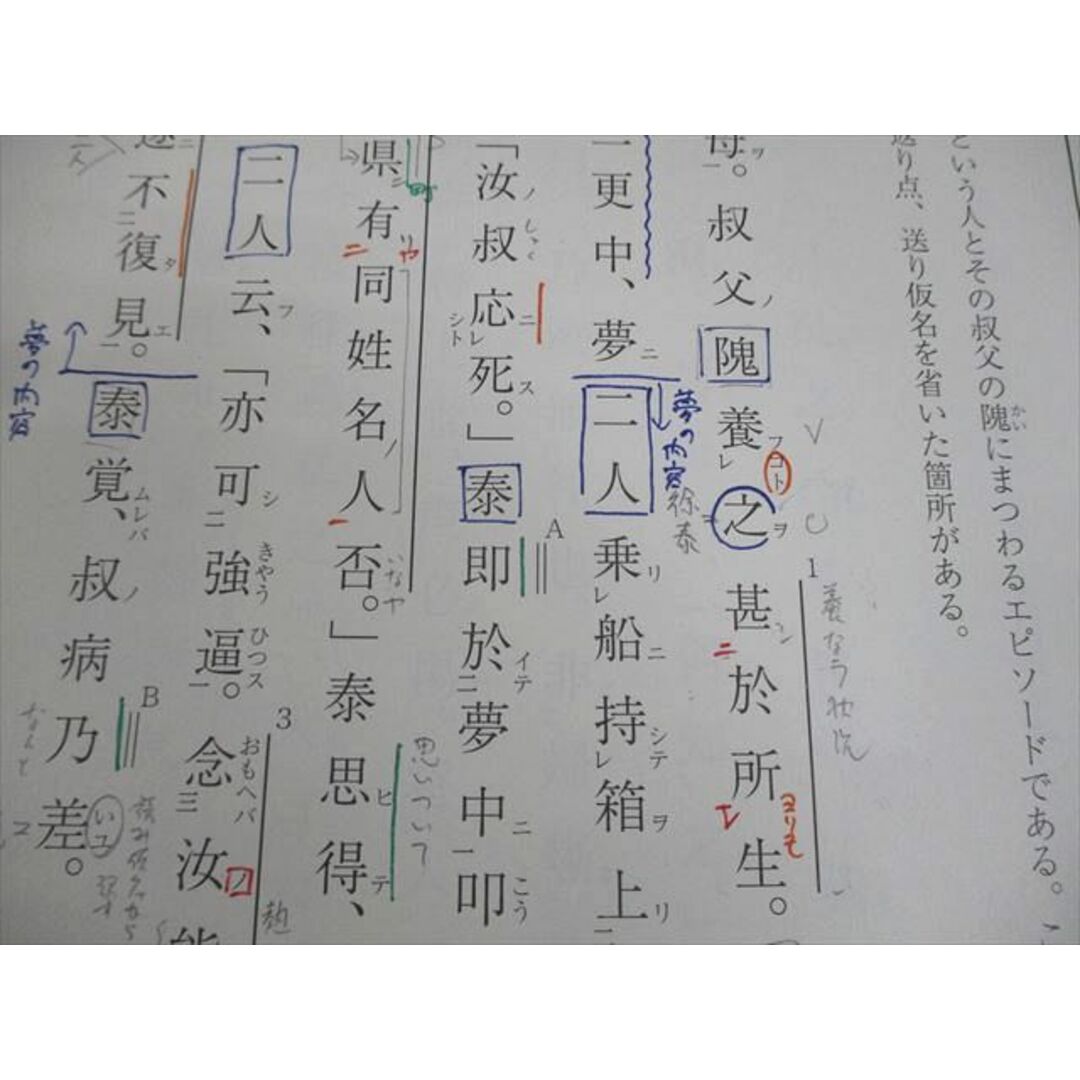 という人とその叔父の隗にまつわるエピソードである。こ
かい
送り点、送り仮名を省いた箇所がある。
1
養なう状況
母。叔父隗養之甚於所生。
徐泰
夢の内容
一更中、夢二人乗船持箱上
A
「汝叔応死。」泰即於夢中叩
思いついて
県有同姓名人否。」泰思得、
3
二人云、「亦可強逼。念汝能
B
遂不復見。泰覚、叔病乃差。
夢の内容